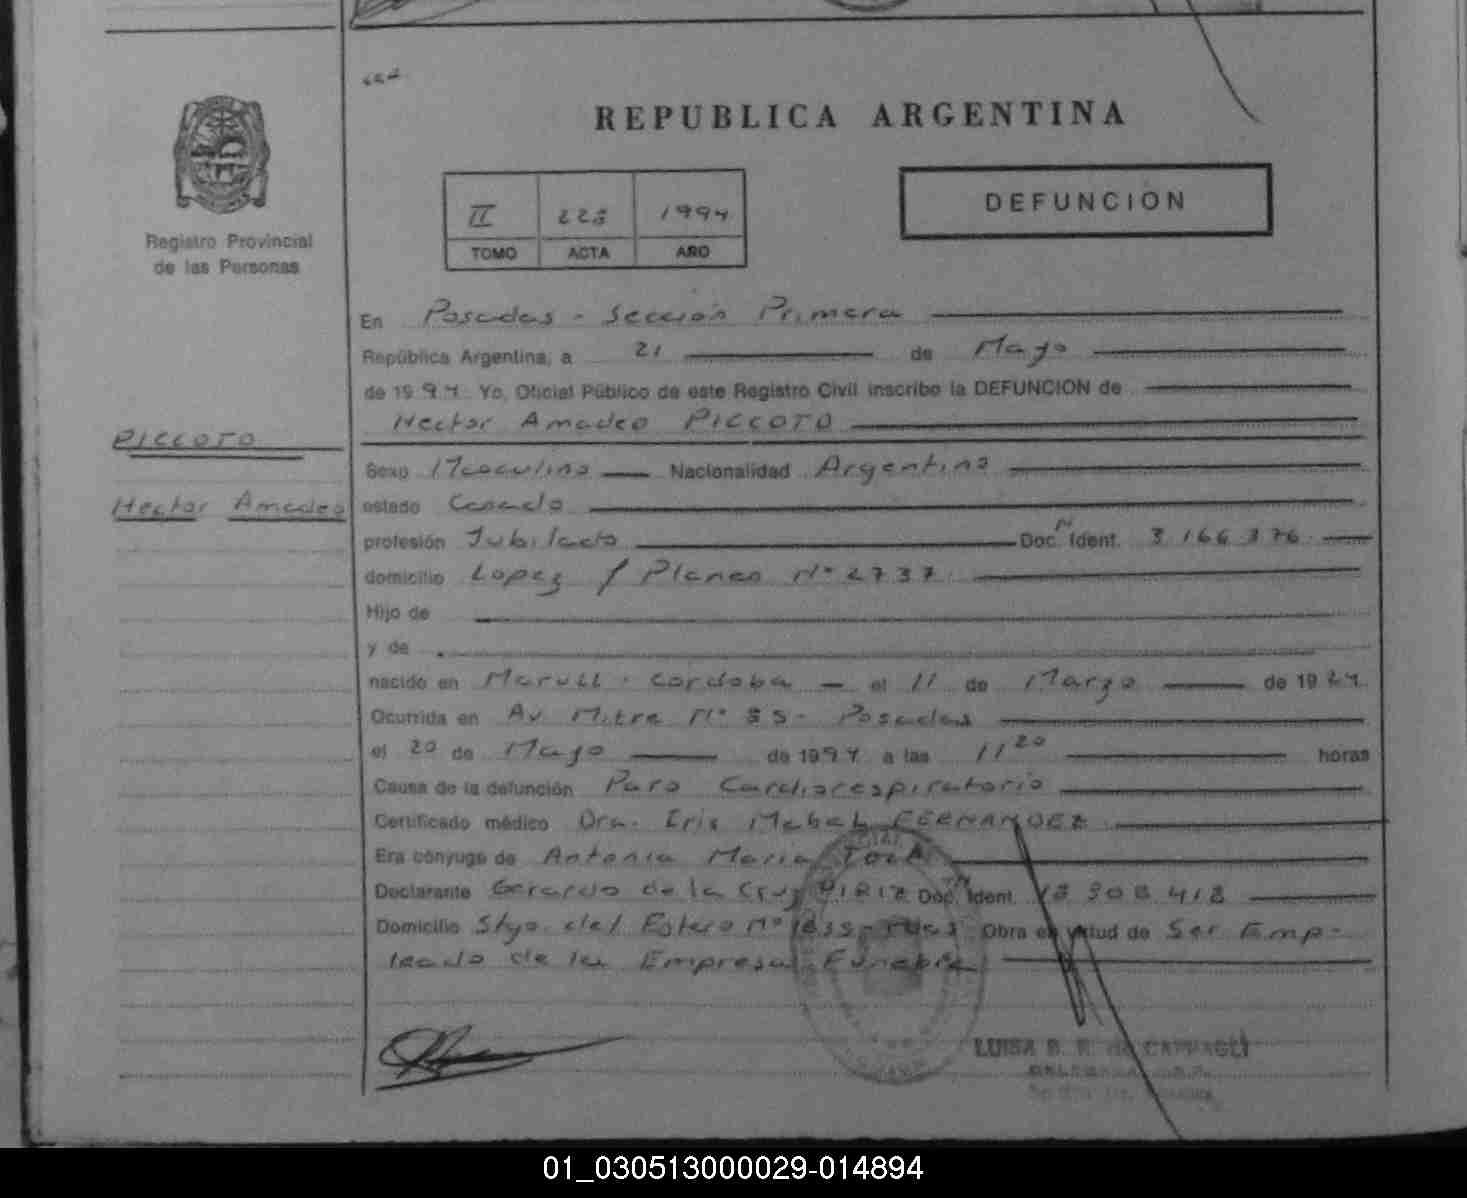 REPUBLICA ARGENTINA
DEFUNCION
II 1994
TOMO ACTA AÑO
Registro Provincial
de las Personas
En Posadas - Sección Primera
República Argentina, a 21 de Mayo
de 1994 Yo, Oficial Público de este Registro Civil inscribo la DEFUNCION de
Hector Amadeo PICCOTO
PICCOTO
Hector Amadeo
Sexo Masculino Nacionalidad Argentina
estado Casado
profesión Jubilado Doc. Ident. 3.166.376
domicilio Lopez y Planes Nº 2737
Hijo de
y de
nacido en Marull - Cordoba - el 11 de Marzo de 192
Ocurrida en Av. Mitre Nº - Posadas
el 20 de Mayo de 1994 a las 11 20 horas
Causa de la defunción Paro Cardiorespiratorio
Certificado médico Dra. Iris Mabel FERNANDEZ
Era cónyuge de Antonia Maria
Declarante Gerardo de la Cruz PIRIZ Doc. Ident.
Domicilio Stgo. del Estero Nº Obra en virtud de Ser Emp-
leado de la Empresa Funebre
LUISA B. R. de
01_030513000029-014894